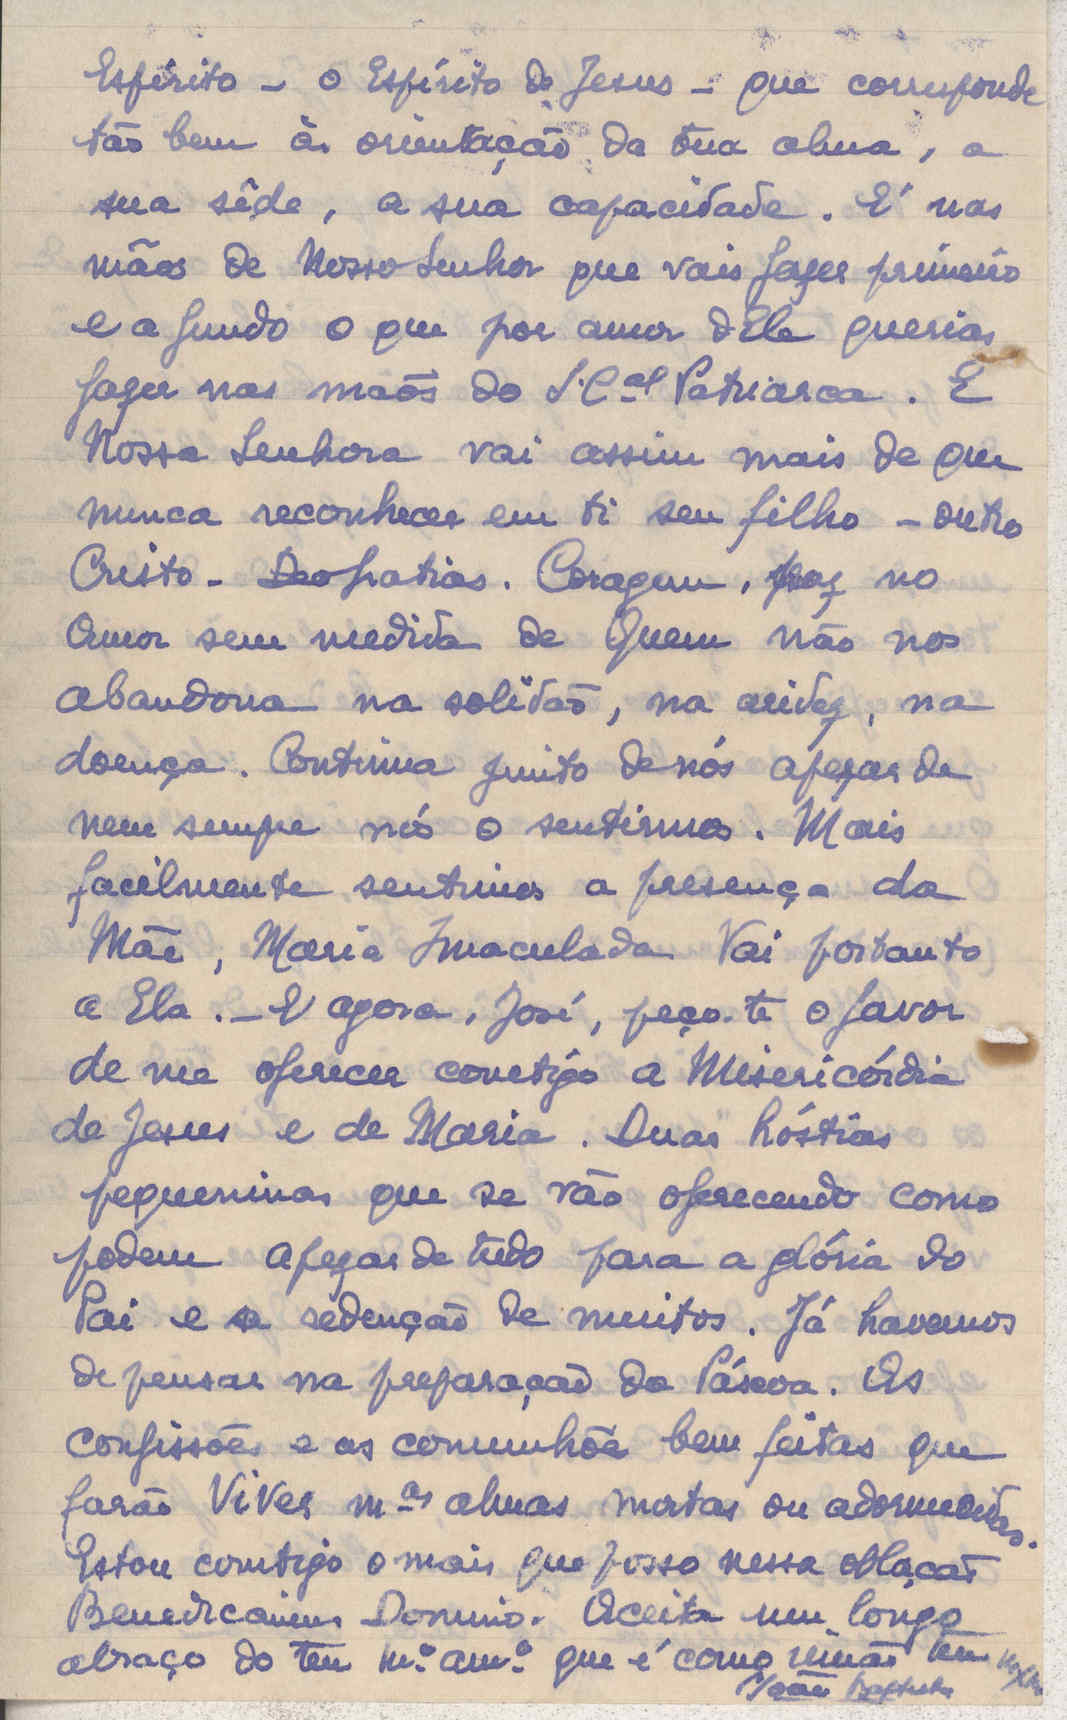 Espírito - o Espírito de Jesus - que corresponde
tão bem às orientação da tua alma, a
sua sêde, a sua capacidade. É nas
mãos de Nosso Senhor que vais fazer primeiro
e a fundo o que por amor dEle querias
fazer nas mãos do S. C.al Patriarca. E
Nossa Senhora vai assim mais de que
nunca reconhecer em ti seu filho - outro
Cristo - Deo gratias. Coragem, no
Amor sem medida de Quem não nos
abandona na solidão, na aridez, na
doença. Continua junto de nós apezar de
nem sempre nós o sentirmos. Mais
facilmente sentimos a presença da
Mãe, Maria Imaculada Vai portanto
a Ela. - E agora, José, peço-te o favor
de me oferecer comtigo a Misericórdia
de Jesus e de Maria. Duas hóstias
pequeninas que se vão oferecendo como
podem apezar de tudo para a glória do
Pai e a redenção de muitos. Já havemos
de pensar na preparação da Páscoa. As
confissões e as comunhões bem feitas que
farão Viver m.as almas mortas ou adormecidas.
Estou comtigo o mais que posso nessa oblação
Benedicamus Domino. Aceita um longo
abraço do teu m.o am.o que é como irmão teu
João Baptista